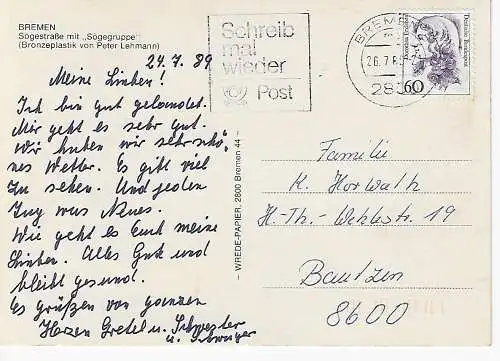 BREMEN
Sögestraße mit „Sögegruppe“
(Bronzeplastik von Peter Lehmann)
24.7.89
Meine Lieben!
Ich bin gut gelandet.
Mir geht es sehr gut.
Wir haben wir sehr schö-
nes Wetter. Es gibt viel
zu sehen. Und jeden
Tag was Neues.
Wie geht es Euch meine
Lieben. Alles Gute und
bleibt gesund.
Es grüßen von ganzen
Herzen Gretel u. Schwester
u. Schwager
– WIREDE-PAPIER, 2800 Bremen 44 –
Schreib
mal
wieder
Post
BREMEN
26.7.8
28
Deutsche Bundespost
60
Familie
K. Horwath
H.-Th.- 19
Bautzen
8600